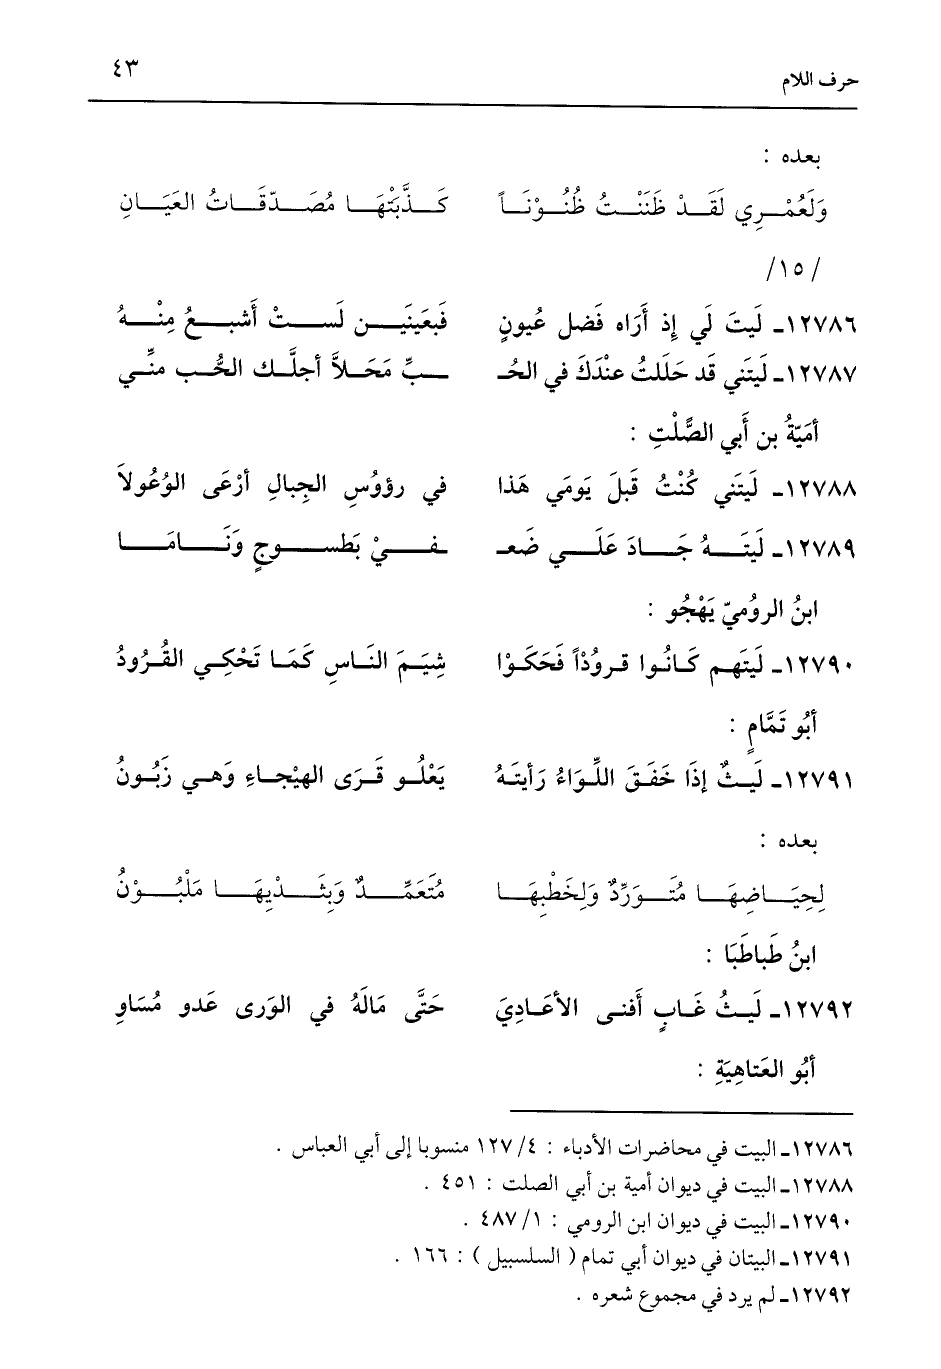 حرف اللام ٤٣
بعده :
وَلَعُمْرِي لَقَدْ ظَنَنْتُ ظُنُوْنَاً كَذَّبَتْهَا مُصَدِّقَاتُ العَيَانِ
/١٥/
١٢٧٨٦ـ لَيتَ لَي إِذ أَرَاه فَضل عُيونٍ فَبعَينَين لَستْ أَشبعُ مِنْهُ
١٢٧٨٧ـ لَيتَني قَد حَلَلتُ عنْدَكَ في الحُـ ـبِّ مَحَلاً أجلَّك الحُّب منِّي
أمَيّةُ بن أَبي الصَّلْتِ :
١٢٧٨٨ـ لَيتَني كُنْتُ قَبلَ يَومَي هَذا في رؤوُسِ الجِبالِ أرْعَى الوُعُولاَ
١٢٧٨٩ـ لَيتَهُ جَادَ عَلَي ضَعـ ـفيْ بَطسوجٍ وَنَامَا
ابنُ الروُميّ يَهْجُو :
١٢٧٩٠ـ لَيتَهم كَانُوا قروُدْاً فَحَكَوْا شِيَمَ النَاسِ كَمَا تَحْكِي القُرُودُ
أبُو تَمَّامٍ :
١٢٧٩١ـ لَيثٌ إذَا خَفَقَ اللِّوَاءُ رَأيتَهُ يَعْلُو قَرَى الهيْجاءِ وَهي زَبُونُ
بعده :
لِحِيَاضِهَا مُتَورِّدٌ وَلِخَطْبِهَا مُتَعَمِّدٌ وَبِثَدْيِهَا مَلْبُوْنُ
ابنُ طَباطَبَا :
١٢٧٩٢ـ لَيثُ غَابٍ أَفنى الأعَادِيَ حَتَّى مَالَهُ في الوَرى عَدو مُسَاوِ
أبُو العَتاهِيَةِ :
١٢٧٨٦ـ البيت في محاضرات الأدباء : ٤/ ١٢٧ منسوبا إلى أبي العباس .
١٢٧٨٨ـ البيت في ديوان أمية بن أبي الصلت : ٤٥١ .
١٢٧٩٠ـ البيت في ديوان ابن الرومي : ١/ ٤٨٧ .
١٢٧٩١ـ البيتان في ديوان أبي تمام ( السلسبيل ) : ١٦٦ .
١٢٧٩٢ـ لم يرد في مجموع شعره .